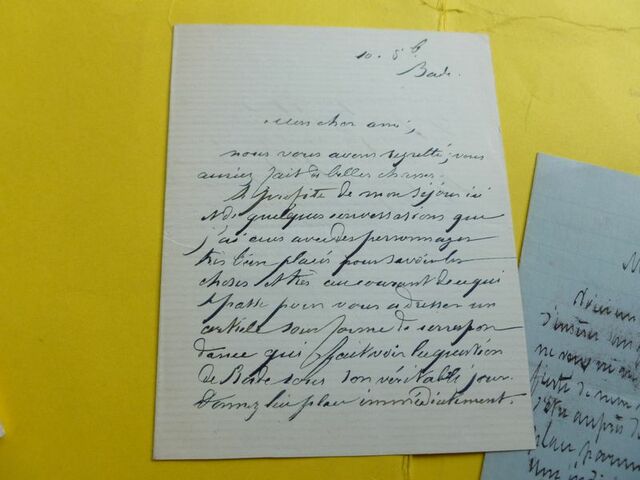 10. 8b
Bade.
Mon cher ami,
nous vous avons regretté; vous
auriez fait de belles choses.
Je profite de mon séjour ici
et de quelques conversations que
j'ai eues avec des personnages
très bien placés pour savoir les
choses et très au courant de ce qui
se passe pour vous adresser un
article sous forme de correspon
dance qui fait voir la question
de Bade sous son véritable jour.
Donnez lui place immédiatement.
d'insérer
ne
fierté de
auprès de